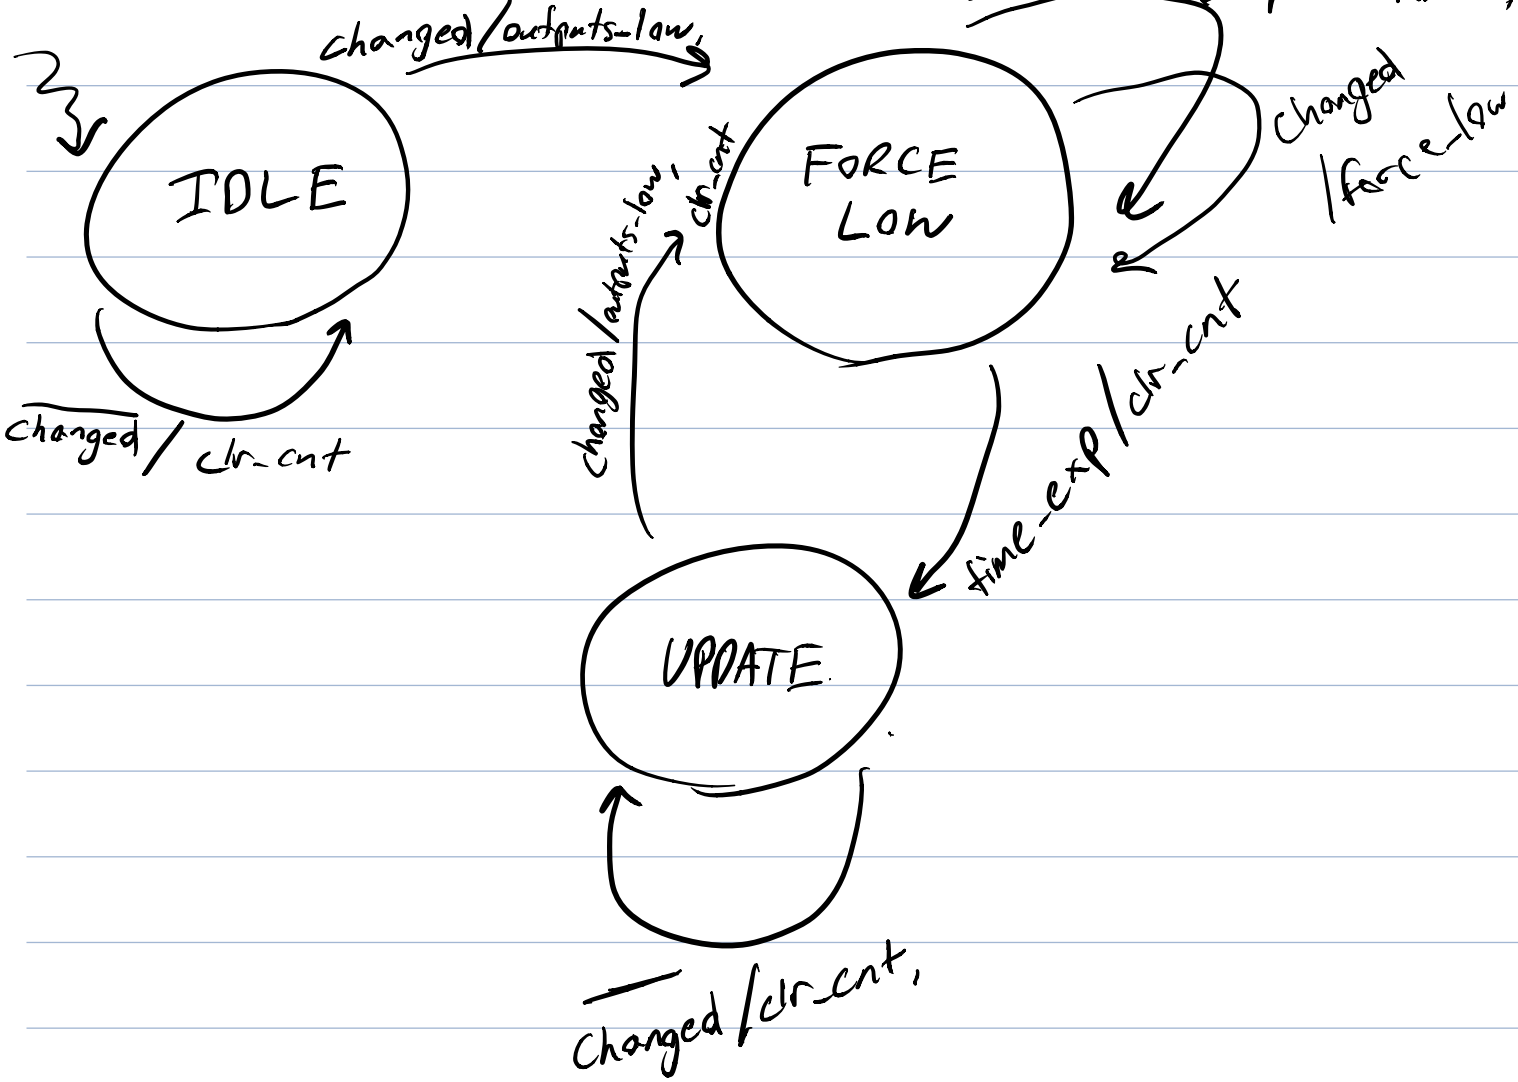 changed/outputs_low,
changed
/force_low
IDLE
FORCE
LOW
changed/outputs_low,
clr_cnt
changed/clr_cnt
time_exp/clr_cnt
UPDATE
changed/clr_cnt,